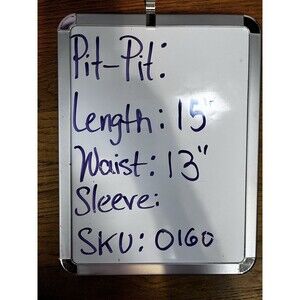 Pit-Pit:
Length: 15"
Waist: 13"
Sleeve:
SKU: 0160